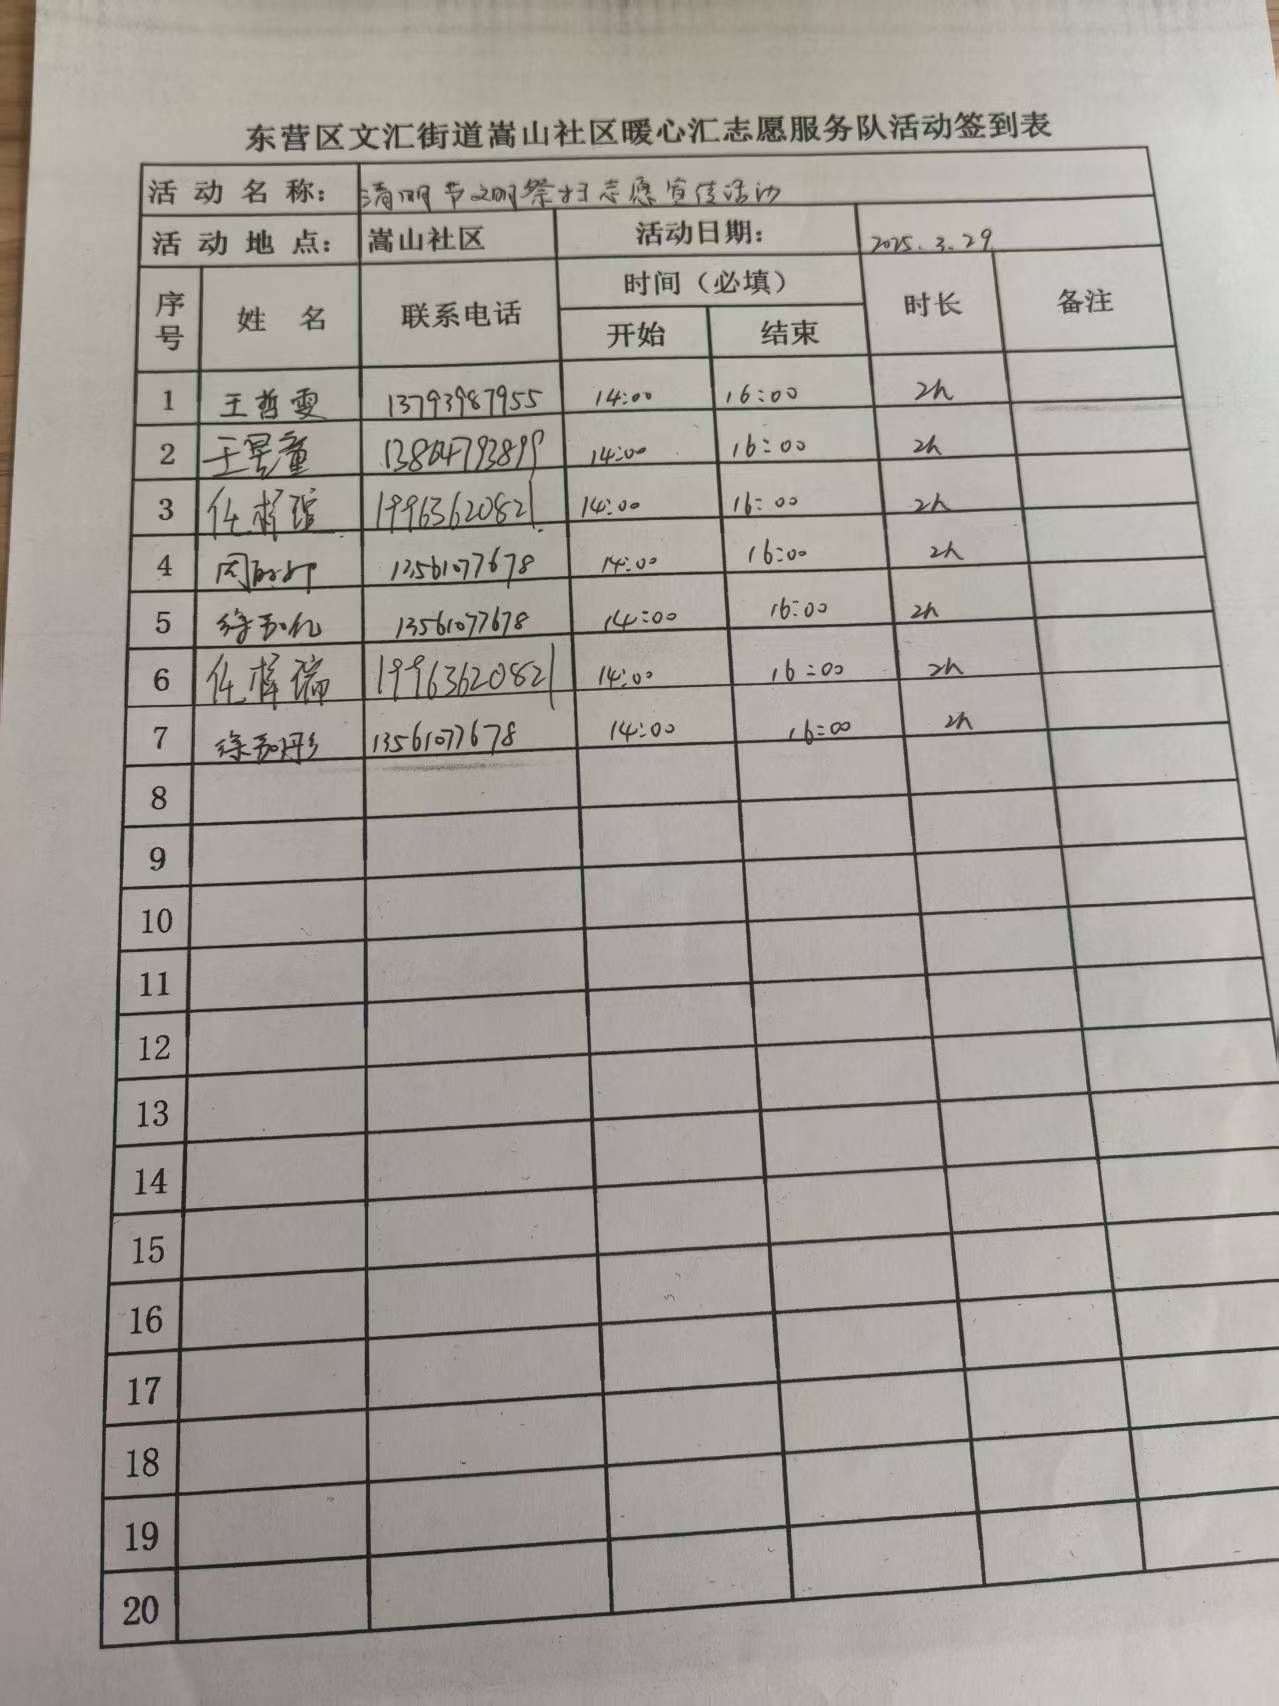 东营区文汇街道嵩山社区暖心汇志愿服务队活动签到表
活动名称： 清明节文明祭扫志愿宣传活动
活动地点： 嵩山社区 活动日期： 2025.3.29
序号 姓名 联系电话 时间（必填） 时长 备注
开始 结束
1 王哲雯 13793987955 14:00 16:00 2h
2 王昱童 13804793899 14:00 16:00 2h
3 任梓瑄 19963620821 14:00 16:00 2h
4 周 13561077678 14:00 16:00 2h
5 徐 13561077678 14:00 16:00 2h
6 任梓瑞 19963620821 14:00 16:00 2h
7 徐 13561077678 14:00 16:00 2h
8
9
10
11
12
13
14
15
16
17
18
19
20